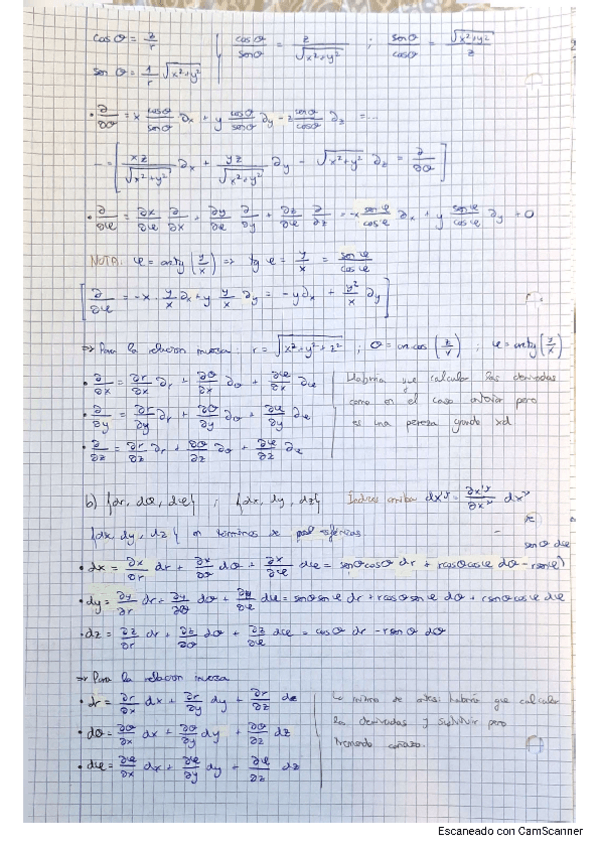 cos θ = z/r | cosθ/senθ = z/√(x²+y²) ; senθ/cosθ = √(x²+y²)/z
sen θ = 1/r √(x²+y²)
• ∂/∂θ = x cosθ/senθ ∂x + y cosθ/senθ ∂y - z senθ/cosθ ∂z = ...
... = [ xz/√(x²+y²) ∂x + yz/√(x²+y²) ∂y - √(x²+y²) ∂z = ∂/∂θ ]
• ∂/∂φ = ∂x/∂φ ∂/∂x + ∂y/∂φ ∂/∂y + ∂z/∂φ ∂/∂z = -x senφ/cosφ ∂x + y senφ/cosφ ∂y + 0
NOTA: φ = arctg (y/x) => tg φ = y/x = senφ/cosφ
[ ∂/∂φ = -x · y/x ∂x + y y/x ∂y = -y∂x + y²/x ∂y ]
=> Para la relacion inversa: r = √(x²+y²+z²) ; θ = arccos (z/r) ; φ = arctg (y/x)
• ∂/∂x = ∂r/∂x ∂r + ∂θ/∂x ∂θ + ∂φ/∂x ∂φ | Habria que calcular las derivadas
• ∂/∂y = ∂r/∂y ∂r + ∂θ/∂y ∂θ + ∂φ/∂y ∂φ | como en el caso anterior pero
• ∂/∂z = ∂r/∂z ∂r + ∂θ/∂z ∂θ + ∂φ/∂z ∂φ | es una pereza grande xd
b) {dr, dθ, dφ} ; {dx, dy, dz} Indices arriba
{dx, dy, dz} en terminos de esfericas
• dx = ∂x/∂r dr + ∂x/∂θ dθ + ∂x/∂φ dφ = senθcosφ dr + rcosθcosφ dθ - rsenφ senθ dφ
• dy = ∂y/∂r dr + ∂y/∂θ dθ + ∂y/∂φ dφ = senθsenφ dr + rcosθsenφ dθ + rsenθcosφ dφ
• dz = ∂z/∂r dr + ∂z/∂θ dθ + ∂z/∂φ dφ = cosθ dr - rsenθ dθ
=> Para la relacion inversa
• dr = ∂r/∂x dx + ∂r/∂y dy + ∂r/∂z dz | Lo mismo de antes habria que calcular
• dθ = ∂θ/∂x dx + ∂θ/∂y dy + ∂θ/∂z dz | las derivadas y sustituir pero
• dφ = ∂φ/∂x dx + ∂φ/∂y dy + ∂φ/∂z dz
Escaneado con CamScanner